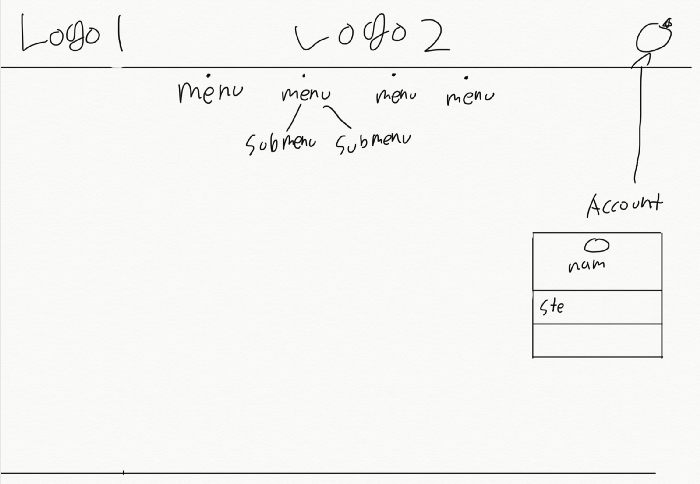 Logo 1 Logo 2
menu menu menu menu
submenu submenu
Account
nam
Ste